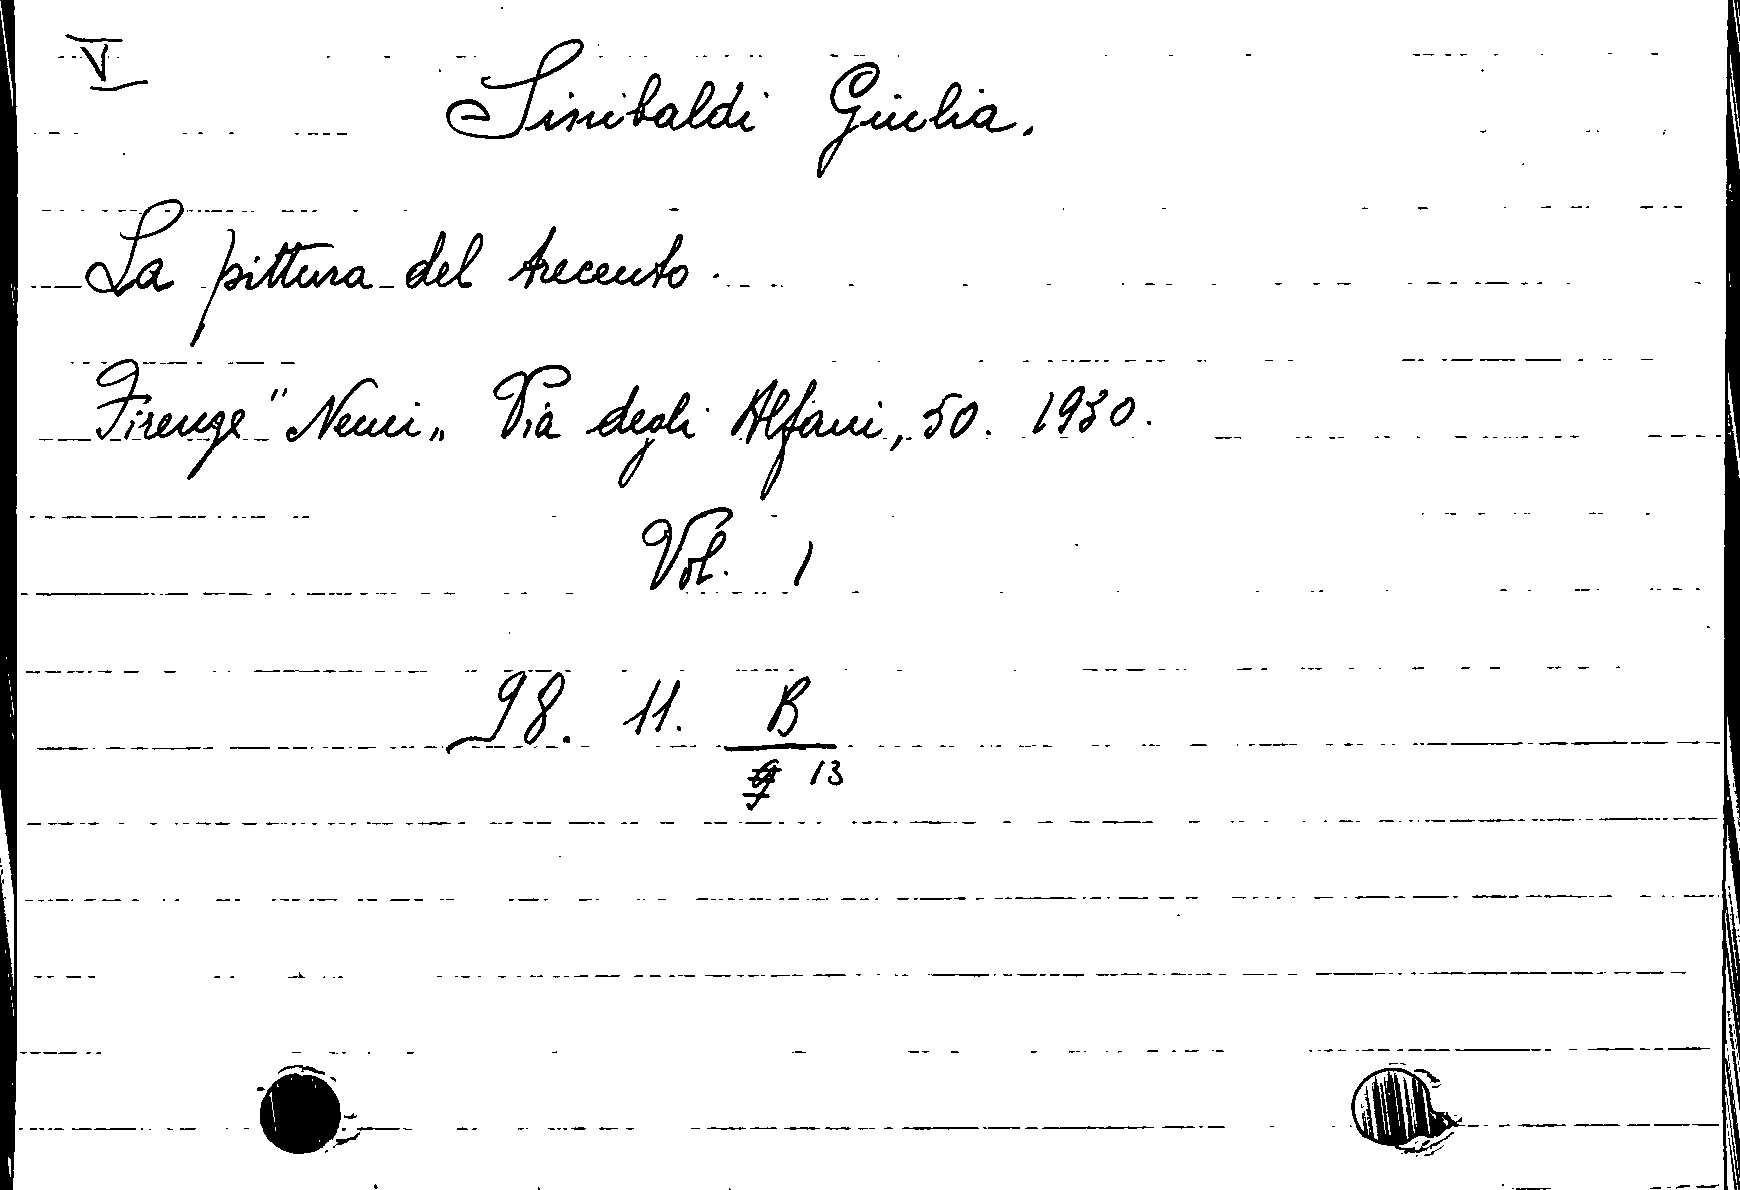 V
Sinibaldi Giulia.
La pittura del trecento.
Firenze "Nemi„ Via degli Alfani, 50. 1930.
Vol. 1
98. 11. B
13